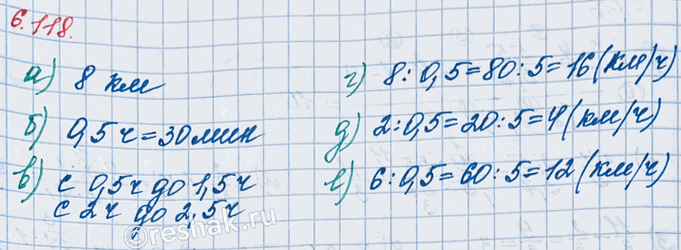 6.118.
а) 8 км
б) 0,5 ч = 30 мин
в) с 0,5ч до 1,5ч
с 2ч до 2,5ч
г) 8 : 0,5 = 80 : 5 = 16 (км/ч)
д) 2 : 0,5 = 20 : 5 = 4 (км/ч)
е) 6 : 0,5 = 60 : 5 = 12 (км/ч)
©reshak.ru